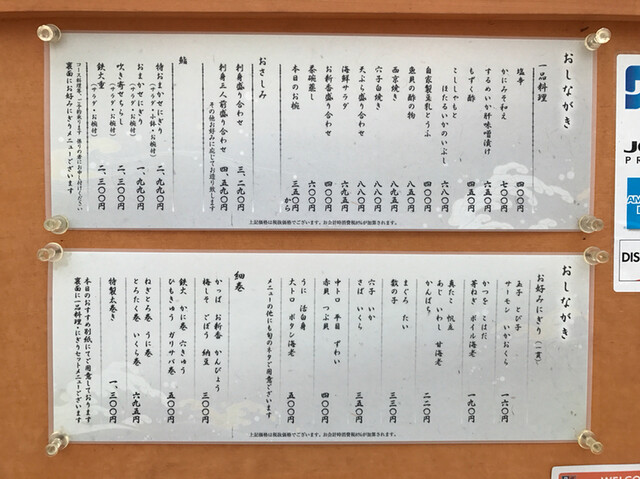 おしながき
一品料理
塩辛 四〇〇円
かにみそ和え 七〇〇円
するめいか肝味噌漬け 六五〇円
もずく酢 四五〇円
こししゃもと ほたるいかのいぶし 六八〇円
自家製豆乳とうふ 四〇〇円
魚貝の酢の物 八五〇円
西京焼き 八九五円
穴子白焼き 八八〇円
天ぷら盛り合わせ 八八〇円
海鮮サラダ 六九五円
お新香盛り合わせ 四〇〇円
茶碗蒸し 六〇〇円
本日のお椀 三五〇円から
おさしみ
刺身盛り合わせ 三、二九〇円
刺身三人前盛り合わせ 四、五九〇円
その他お好みに応じてお造り致します
鮨
特おまかせにぎり 二、九九〇円
(サラダ・小鉢・お椀付)
おまかせにぎり 一、九九〇円
(サラダ・お椀付)
吹き寄せちらし 二、三〇〇円
(サラダ・お椀付)
鉄火重 二、三〇〇円
(サラダ・お椀付)
裏面にお好みにぎりメニューございます
上記価格は税抜価格でございます。お会計時消費税8%が加算されます。
おしながき
お好みにぎり(一貫)
玉子 とび子
サーモン いかおくら 一六〇円
かつを こはだ
芽ねぎ ボイル海老 一九〇円
真たこ 帆立
あじ いわし 甘海老
かんぱち 二二〇円
まぐろ たい
数の子 三三〇円
穴子 いか
さば いくら 三五〇円
中トロ 平目 ずわい
赤貝 つぶ貝 四〇〇円
うに 活白身
大トロ ボタン海老 五〇〇円
メニューの他にも旬のネタご用意ございます
細巻
かっぱ お新香 かんぴょう
梅しそ ごぼう 納豆 三〇〇円
鉄火 かに巻 穴きゅう
ひもきゅう ガリサバ巻 五〇〇円
ねぎとろ巻 うに巻
とろたく巻 いくら巻 六九五円
特製太巻き 一、三〇〇円
本日のおすすめ別紙にてご用意しております
裏面に一品料理・にぎりセットメニューございます
上記価格は税抜価格でございます。お会計時消費税8%が加算されます。
DIS
WELCO